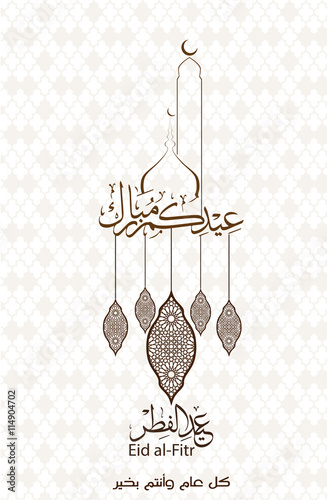 عيدكم مبارك
عيد الفطر
Eid al-Fitr
كل عام وأنتم بخير
Adobe Stock | #114904702